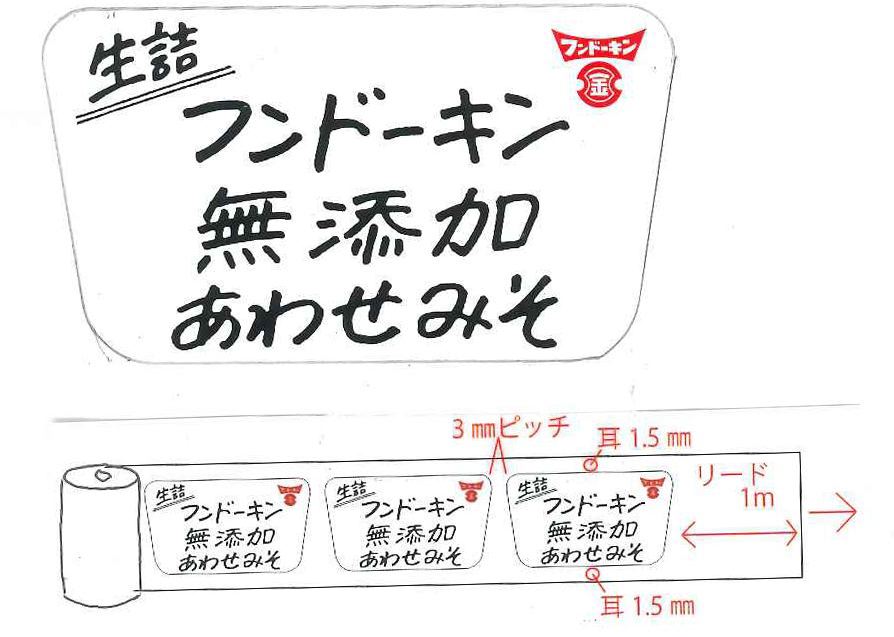 生詰
フンドーキン
金
フンドーキン
無添加
あわせみそ
3㎜ピッチ
耳 1.5 ㎜
リード
1m
生詰
フンドーキン
無添加
あわせみそ
生詰
フンドーキン
無添加
あわせみそ
生詰
フンドーキン
無添加
あわせみそ
耳 1.5 ㎜